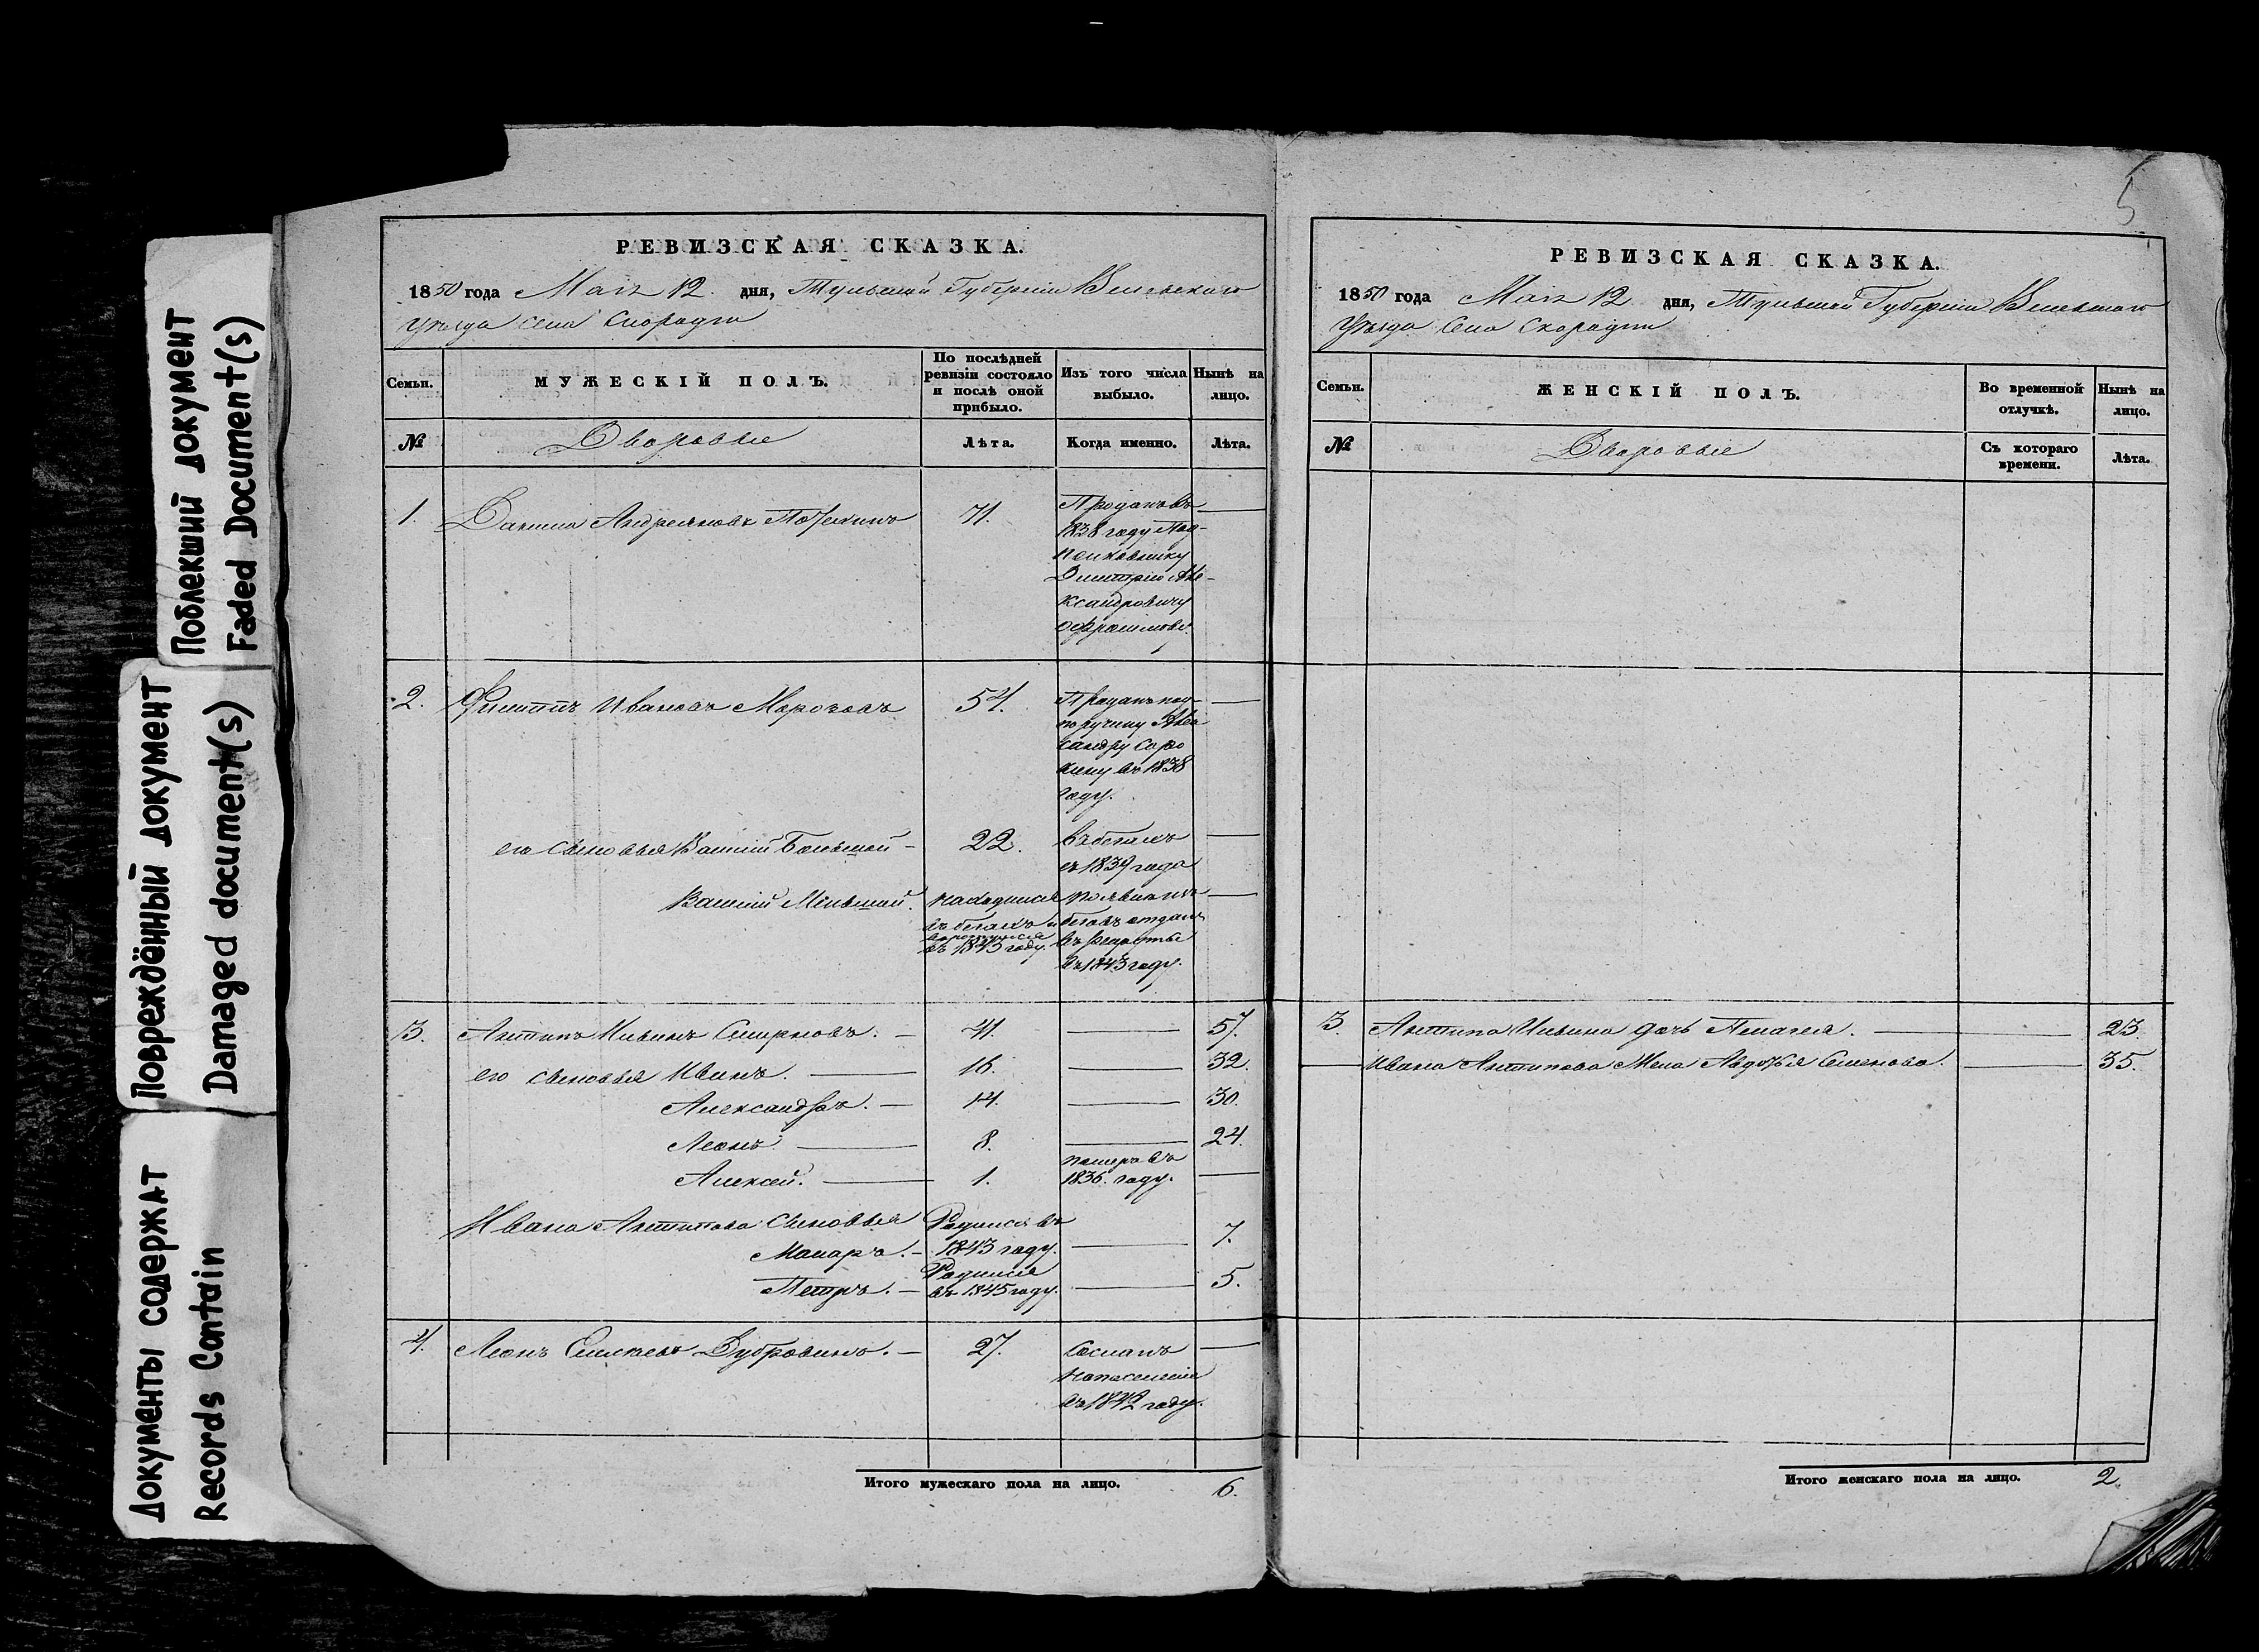 Поблекший документ
Faded Document(s)
Повреждённый документ
Damaged document(s)
Документы содержат
Records Contain
РЕВИЗСКАЯ СКАЗКА.
1850 года Маія 12 дня, Тульской Губерніи
уѣзда села
Семьи.
МУЖЕСКІЙ ПОЛЪ.
По послѣдней
ревизіи состояло
и послѣ оной
прибыло.
Изъ того числа
выбыло.
Нынѣ на
лицо.
№
Дворовые
Лѣта.
Когда именно.
Лѣта.
1. Данила Андреяновъ 71.
Проданъ въ
1838 году Под-
полковнику
Дмитрію Але-
ксандровичу
2. Филиппъ Ивановъ Морозовъ 54.
Проданъ под-
поручику Алек
сандру Соро
кину въ 1838
году.
его сыновья Василій Большой - 22.
въ бегахъ
съ 1839 года
Василій Меньшой.
находился
въ бегахъ и
въ 1843 году.
бегавъ отданъ
въ рекруты
въ 1843 году.
3. Антипъ Ильинъ Смирновъ. - 41. 57.
его сыновья Иванъ. 16. 32.
Александръ. - 14. 30.
Леонъ. 8. 24.
Алексей. 1.
померъ въ
1836. году.
Ивана Антипова сыновья
Макаръ. -
Родился въ
1843 году.
7.
Петръ. -
Родился
въ 1845 году.
5.
4. Леонъ Дубровинъ. - 27.
Сосланъ
на поселеніе
въ 1842 году.
Итого мужескаго пола на лицо. 6.
5
РЕВИЗСКАЯ СКАЗКА.
1850 года Маія 12 дня, Тульской Губерніи
Уѣзда Села
Семьи.
ЖЕНСКІЙ ПОЛЪ.
Во временной
отлучкѣ.
Нынѣ на
лицо.
№
Дворовые
Съ котораго
времени.
Лѣта.
3. Антипа Ильина дочь Пелагея. 23.
Ивана Антипова Жена Авдотья Семенова. 35.
Итого женскаго пола на лицо. 2.